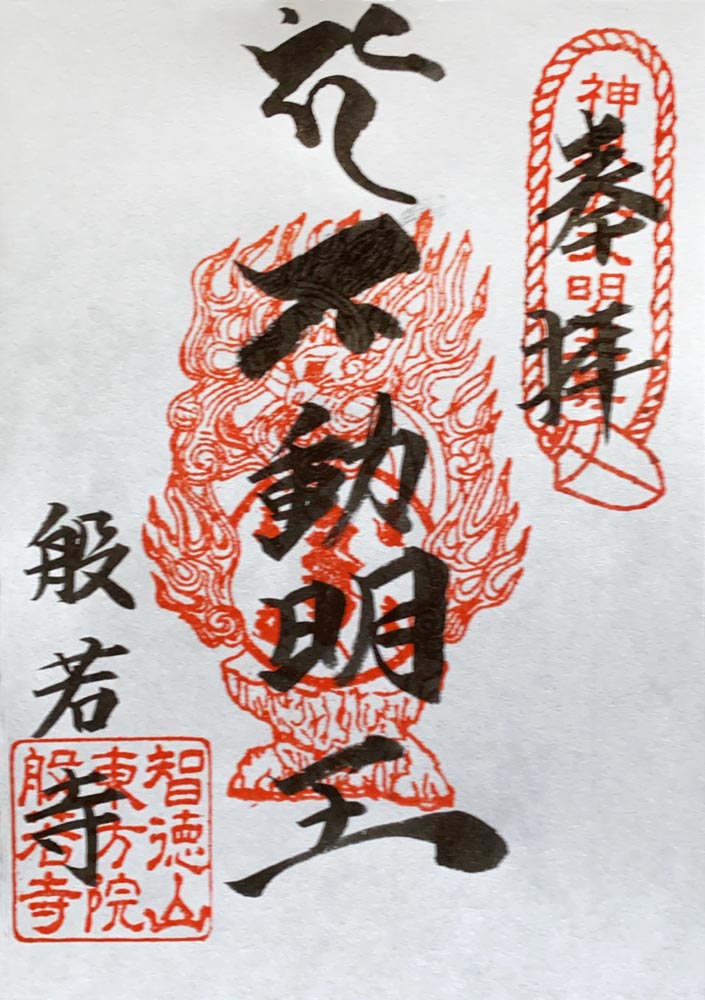 奉拝
不動明王
般若寺
智徳山
東方院
般若寺